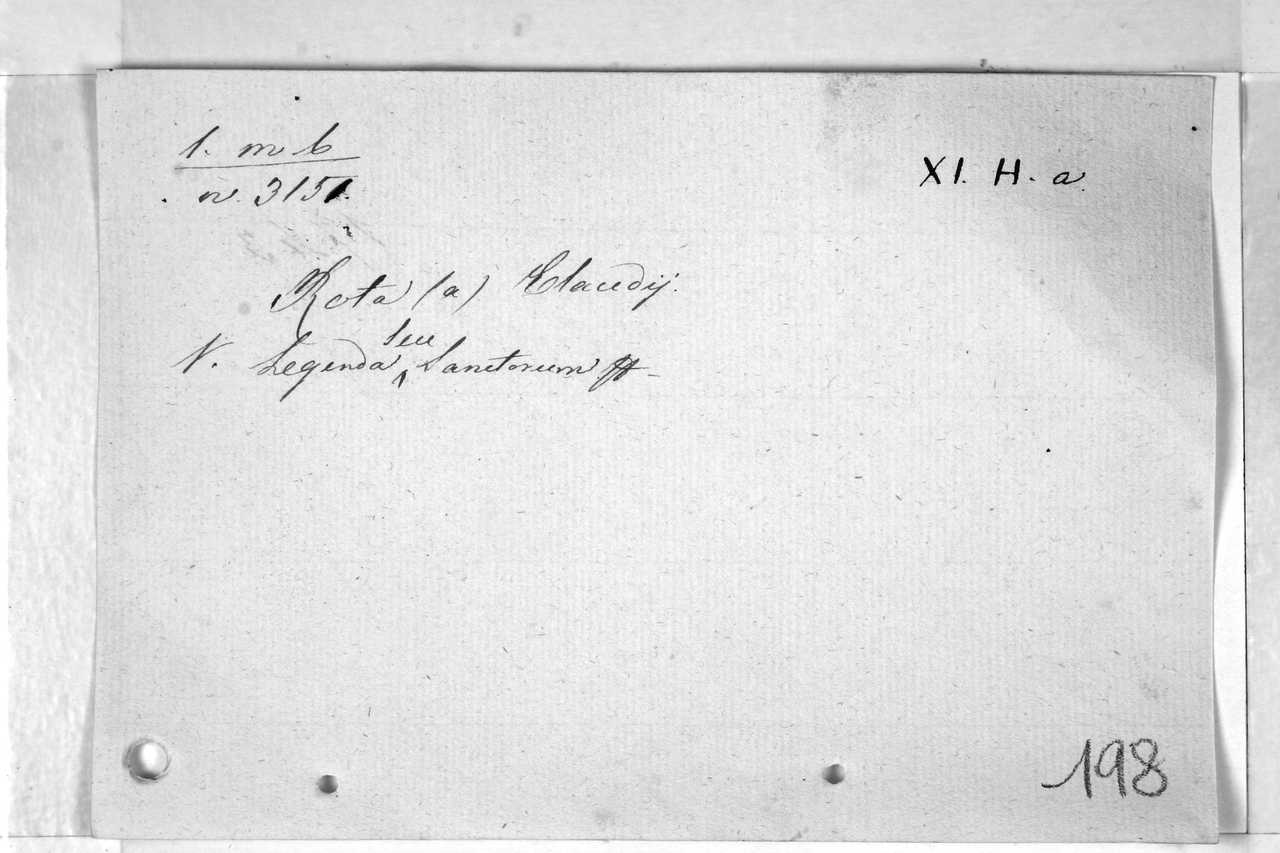 1. m b
n. 3151.
XI. H. a.
Rota (a) Claudij.
V. Legenda seu Sanctorum
198